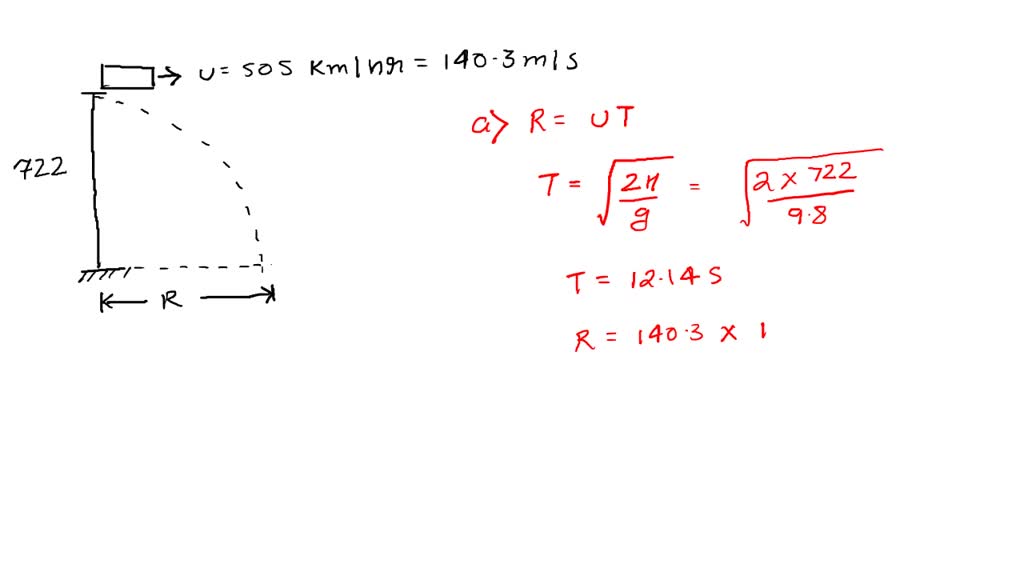 u = 505 Km/hr = 140.3 m/s
722
R
a) R = UT
T = √(2H/g) = √(2 × 722/9.8)
T = 12.14 S
R = 140.3 × 1